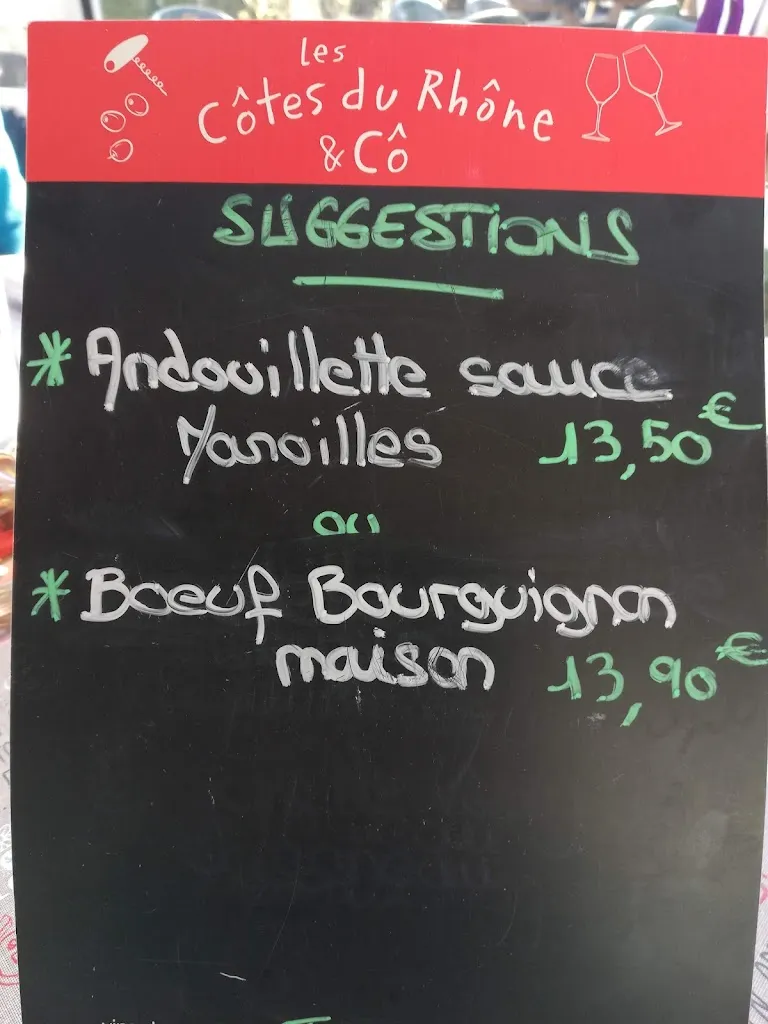 les
Côtes du Rhône
& Cô
SUGGESTIONS
* Andouillette sauce
Maroilles 13,50€
ou
* Boeuf Bourguignon
maison 13,90€